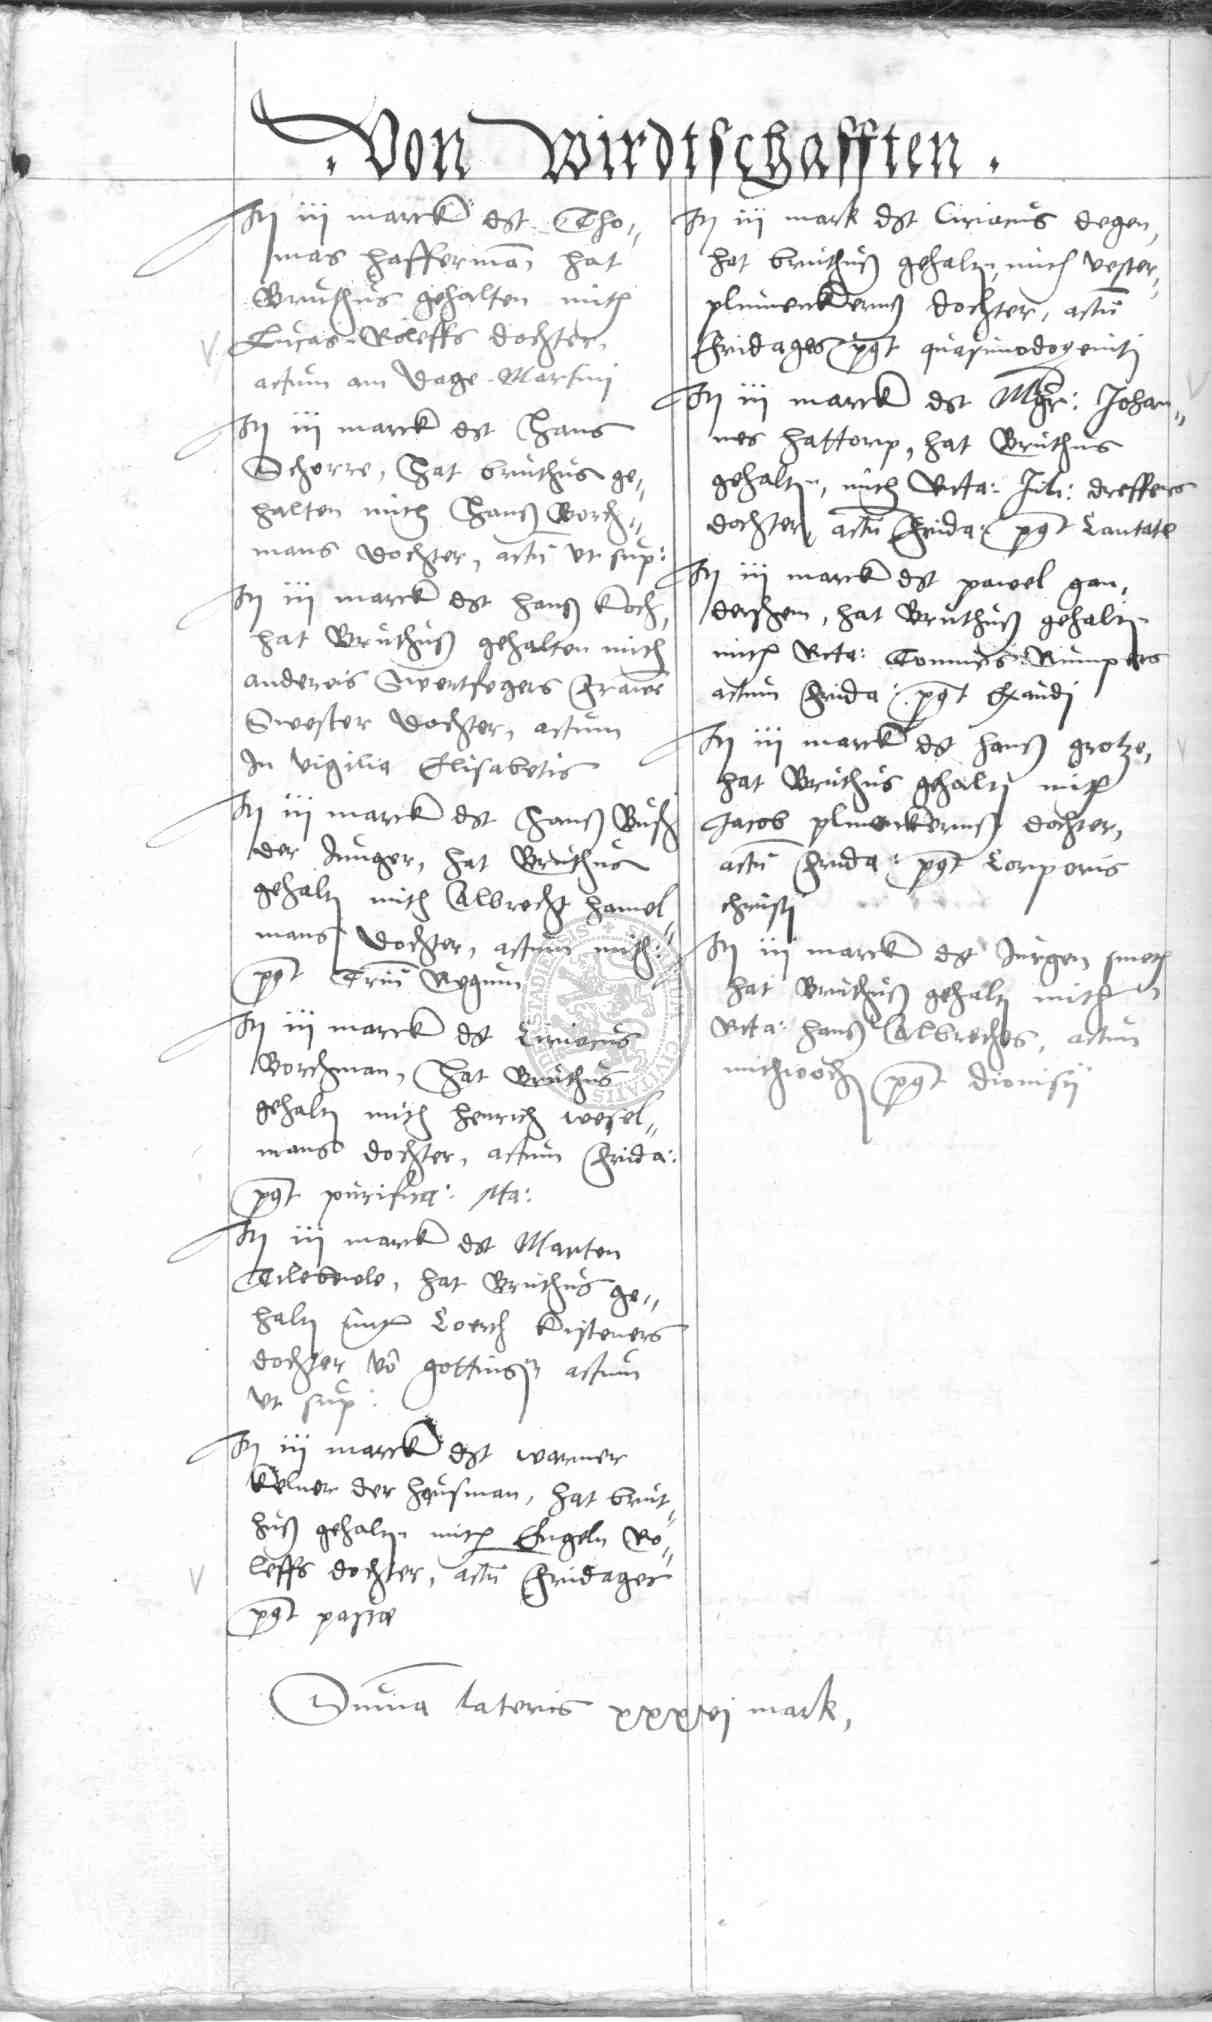 . Von Wirdtschafften .
It iii marck dst Tho„
mas Hafferman hat
Bruthus gehalten mith
Lucas Roleffs dochter,
actum am dage Martini
It iii marck dst Hans
Scherre, Hat bruthus ge„
halten mith Hanß Borch„
mans dochter, actu vt sup:
It iii marck dst hanß koch,
hat Bruthuß gehalten mith
andereis Swertfegers frawe
Swester dochter, actum
In vigilia Elisabetis
It iii marck dst Hanß Bussch
der Junger, hat Bruthus
gehaltn mith Albrecht hamel„
mans dochter, actum mith:
post Triu Regum
It iii marck dst Ciriacus
Borchman, Hat Bruthus
gehaltn mith Henrich wesel„
mans dochter, actum Frida:
post purifica: Ma:
It iii marck dst Marten
hat Bruthus ge„
haltn mith Kisteners
dochter vo gottingn actum
vt sup:
It iii marck dst warner
kelner der husman, hat brut„
huß gehaltn mith Engeln Ro„
leffs dochter, actu Fridages
post pasce
It iii mark dst Ciriacus degen,
hat bruthuß gehaltn mith vester„
plumenkemß dochter, actu
Fridages post quasimodogeniti
It iii marck dst Mgr: Johan„
nes hattorp, hat Bruthus
gehaltn, mith Rcta: Jili: dreffens
dochter, actu Frida: post Cantate
It iii marck dst pawel gan„
derßem, hat Bruthuß gehaltn
mith Rcta: Tonnies Rumpers
actum Frida: post Exaudi
It iii marck dst hanß grotze,
hat Bruthus gehaltn mith
Jacob dochter,
actu Frida: post Corporis
christi
It iii marck dst Jurgen smeth
hat Bruthuß gehaltn mith
Rcta: hanß Albrechts, actum
mithwoch post dionisii
Suma lateris xxxvi mark,